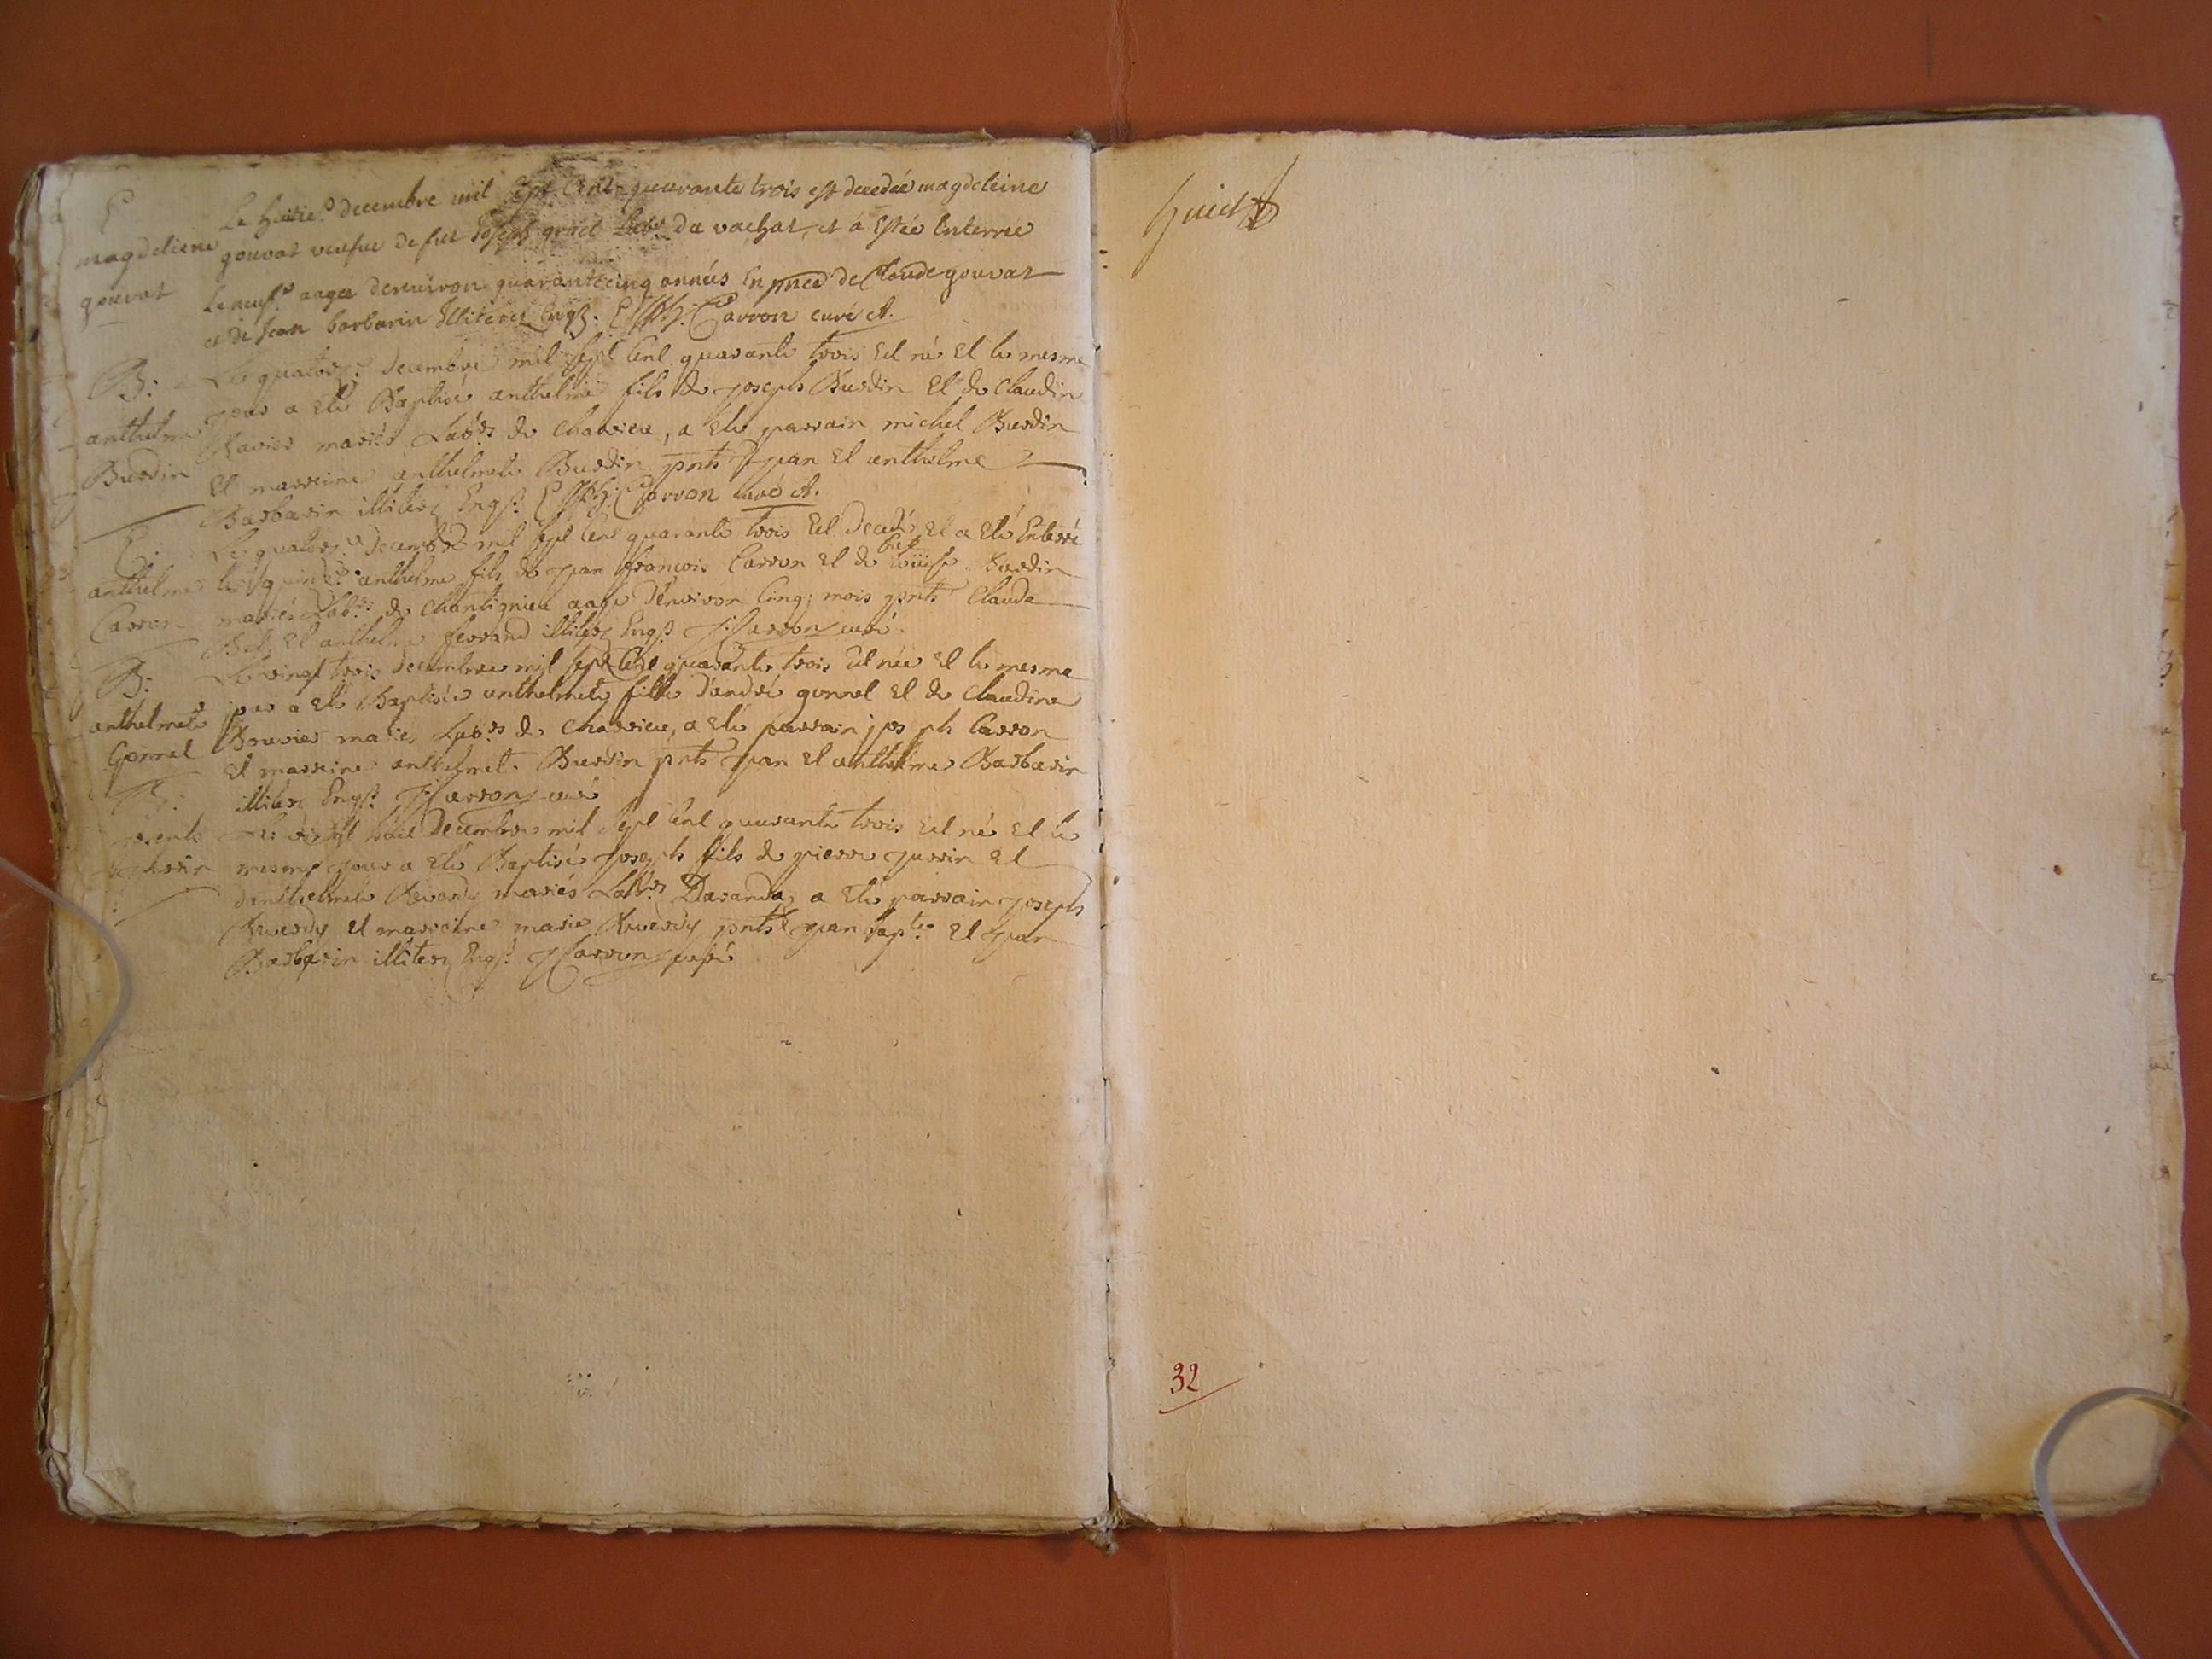 E
magdeliene
gouvat
Le huitie.e decembre mil sept Cent quarante trois est decedeé magdeleine
gouvat veufve de fut Joseph Labr. da vachat, et á Estée Enterrée
Le neuf.e aageé denviron quarantecinq anneés En pnce de Claude gouvat
et de Jean barbarin Illiterés Enqs. Carron curé A.
B:
anthelme
Burdin
Le quators.e decembre mil sept Cent quarante trois Est né Et le mesme
jour a Eté Baptisé anthelme fils de joseph Burdin Et de Claudine
mariés Labrs de Chavieu, a Eté parrain michel Burdin
Et marreine anthelmete Burdin pnts jean Et anthelme
Barbarin illiterz Enqs. Carron curé A.
E:
anthelme
Carron
Le quators.e Decembre mil sept Cent quarante trois Est Decedé Et a Eté Enterré
le quinz.e anthelme fils de jean françois Carron Et de Louise Burdin
mariés Labrs de Chantignieu aagé D'environ Cinq mois pnts Claude
Et anthelme ferrand illiterz Enqs J: Carron curé.
B:
anthelmete
Gonnet
Le vingt trois decembre mil sept Cent quarante trois Est née Et le mesme
jour a Eté Baptisée anthelmete fille d'andré gonnet Et de Claudine
Bouvier mariés Labrs de Chavieu, a Eté parrain joseph Carron
Et marreine anthelmete Burdin pnts jean Et anthelme Barbarin
illiterz Enqs J: Carron curé
B:
Le vingt huit Decembre mil sept Cent quarante trois Est né Et le
mesme jour a Eté Baptisé joseph fils de pierre Et
d'anthelmete mariés Labrs Davanda, a Eté parrain joseph
Et marreine marie pnts jean bapte. Et jean
Barbarin illiterz Enqs J: Carron curé
huict
32